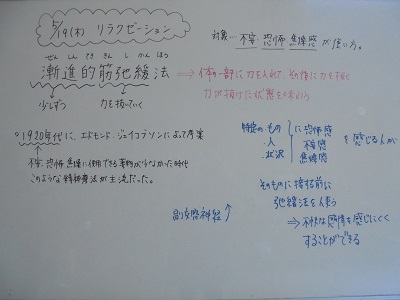 5/19(木) リラクゼーション
対象… 不安 恐怖 焦燥感 が強い方。
ぜん しん てき きん し かん ほう
漸進的筋弛緩法
⇒体の一部に力を入れて、その後に力を抜く
力が抜けた状態を味わう
少しずつ
力を抜いていく
○1920年代に、エドモンド・ジェイコブソンによって考案
不安、恐怖、焦燥に使用できる薬物が少なかった時代
このような精神療法が主流だった。
特定の・もの
・人
・状況
に恐怖感
不安感
焦燥感
を感じる人が
そのものに接する前に
弛緩法を使う
⇒不快な感情を感じにくく
することができる
副交感神経↑